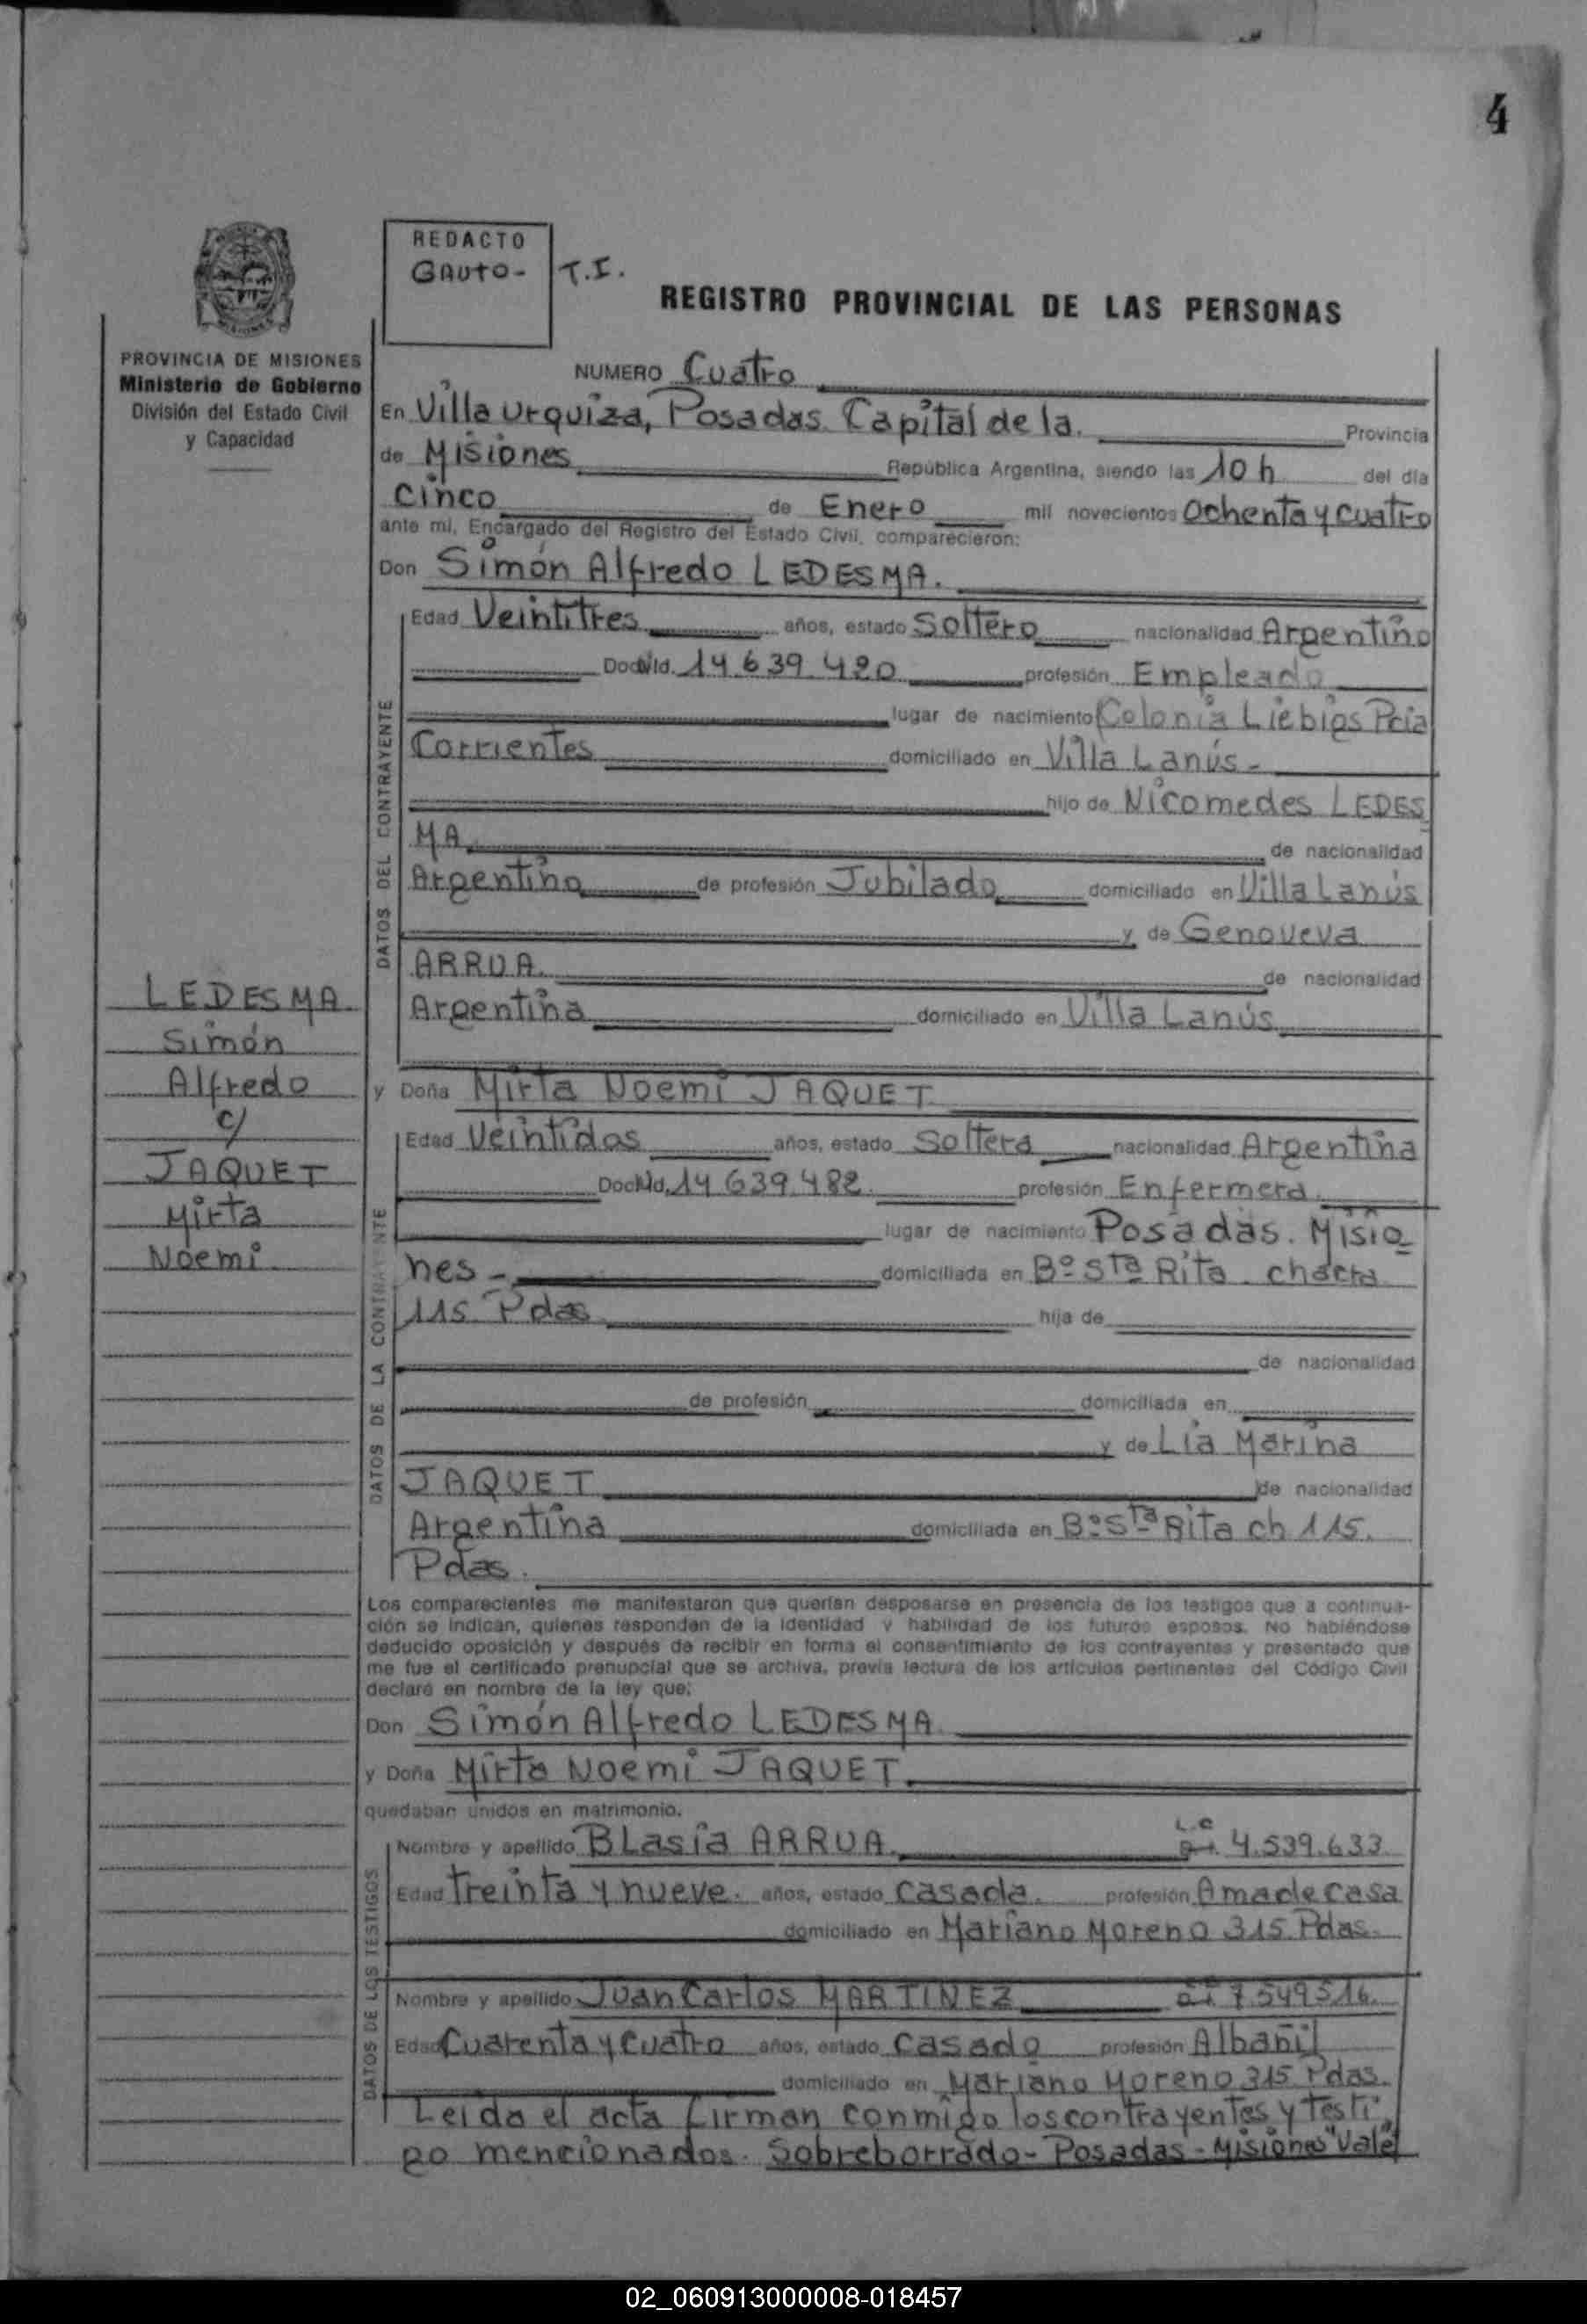 4
REDACTO
GAUTO- T.I.
REGISTRO PROVINCIAL DE LAS PERSONAS
PROVINCIA DE MISIONES
Ministerio de Gobierno
División del Estado Civil
y Capacidad
NUMERO Cuatro
En Villa Urquiza, Posadas Capital de la Provincia
de Misiones República Argentina, siendo las 10 h del día
cinco de Enero mil novecientos Ochenta y cuatro
ante mi, Encargado del Registro del Estado Civil, comparecieron:
Don Simón Alfredo LEDESMA.
DATOS DEL CONTRAYENTE
Edad Veintitres años, estado Soltero nacionalidad Argentino
Doc. Id. 14.639.420 profesión Empleado
lugar de nacimiento Colonia Liebigs Pcia
Corrientes domiciliado en Villa Lanús-
hijo de Nicomedes LEDES
MA de nacionalidad
Argentino de profesión Jubilado domiciliado en Villa Lanús
y de Genoveva
ARRUA. de nacionalidad
Argentina domiciliado en Villa Lanús
LEDESMA
Simón
Alfredo
c/
JAQUET
Mirta
Noemi
y Doña Mirta Noemi JAQUET
DATOS DE LA CONTRAYENTE
Edad Veintidos años, estado Soltera nacionalidad Argentina
Doc. Id. 14.639.482 profesión Enfermera
lugar de nacimiento Posadas. Misio
nes- domiciliada en Bº Sta Rita chacra
115 Pdas hija de
de nacionalidad
de profesión domiciliada en
y de Lia Marina
JAQUET de nacionalidad
Argentina domiciliada en Bº Sta Rita ch 115.
Pdas.
Los comparecientes me manifestaron que querían desposarse en presencia de los testigos que a continua-
ción se indican, quienes responden de la identidad y habilidad de los futuros esposos. No habiéndose
deducido oposición y después de recibir en forma el consentimiento de los contrayentes y presentado que
me fue el certificado prenupcial que se archiva, previa lectura de los artículos pertinentes del Código Civil
declaré en nombre de la ley que:
Don Simón Alfredo LEDESMA
y Doña Mirta Noemi JAQUET.
quedaban unidos en matrimonio.
DATOS DE LOS TESTIGOS
Nombre y apellido BLasia ARRUA. L.C 4.539.633
Edad treinta y nueve. años, estado casada. profesión Ama de casa
domiciliado en Mariano Moreno 315 Pdas.
Nombre y apellido Juan Carlos MARTINEZ 7.549516.
Edad Cuarenta y cuatro años, estado casado profesión Albañil
domiciliado en Mariano Moreno 315 Pdas.
Leido el acta firman conmigo los contrayentes y testi
go mencionados. Sobreborrado- Posadas- Misiones "Vale"
02_060913000008-018457